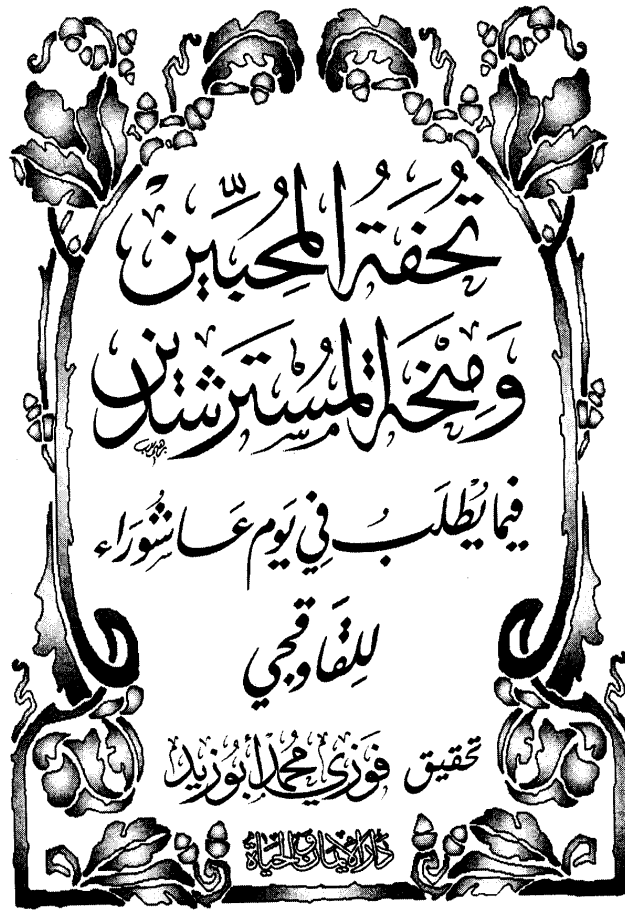 تُحْفَةُ المُحِبِّين
وَمِنْحَةُ المُسْتَرْشِدِين
فِيمَا يُطْلَبُ فِي يَوْمِ عَاشُورَاء
لِلقَاوقجي
تحقيق فَوزي محمد أبوزيد
دار الإيمان والحياة